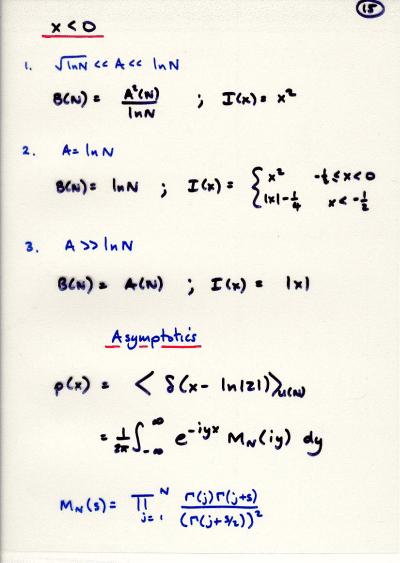 15
x < 0
1. √lnN << A << lnN
B(N) = A²(N)/lnN ; I(x) = x²
2. A = lnN
B(N) = lnN ; I(x) = { x² -½ ≤ x < 0
|x| - ¼ x < -½
3. A >> lnN
B(N) = A(N) ; I(x) = |x|
Asymptotics
ρ(x) = < δ(x - ln|Z|) >_{U(N)}
= 1/2π ∫_{-∞}^{∞} e^{-iyx} M_N(iy) dy
M_N(s) = ∏_{j=1}^{N} Γ(j)Γ(j+s)/(Γ(j+s/2))²